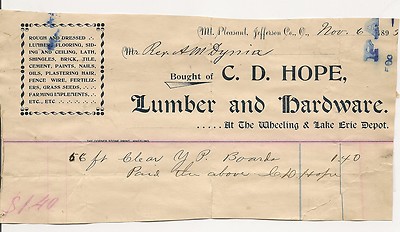 Mt. Pleasant, Jefferson Co., O., Nov. 6 189
Mr. Rev. A M Dysia
ROUGH AND DRESSED
LUMBER FLOORING, SID-
ING AND CEILING, LATH,
SHINGLES, BRICK, TILE,
CEMENT, PAINTS, NAILS,
OILS, PLASTERING HAIR,
FENCE WIRE, FERTILIZ-
ERS, GRASS SEEDS,
FARMING IMPLEMENTS,
ETC., ETC.
Bought of C. D. HOPE,
Lumber and Hardware.
.....At The Wheeling & Lake Erie Depot.
56 ft Clear Y P. Boards 1.40
Paid the above C D Hope
$1.40